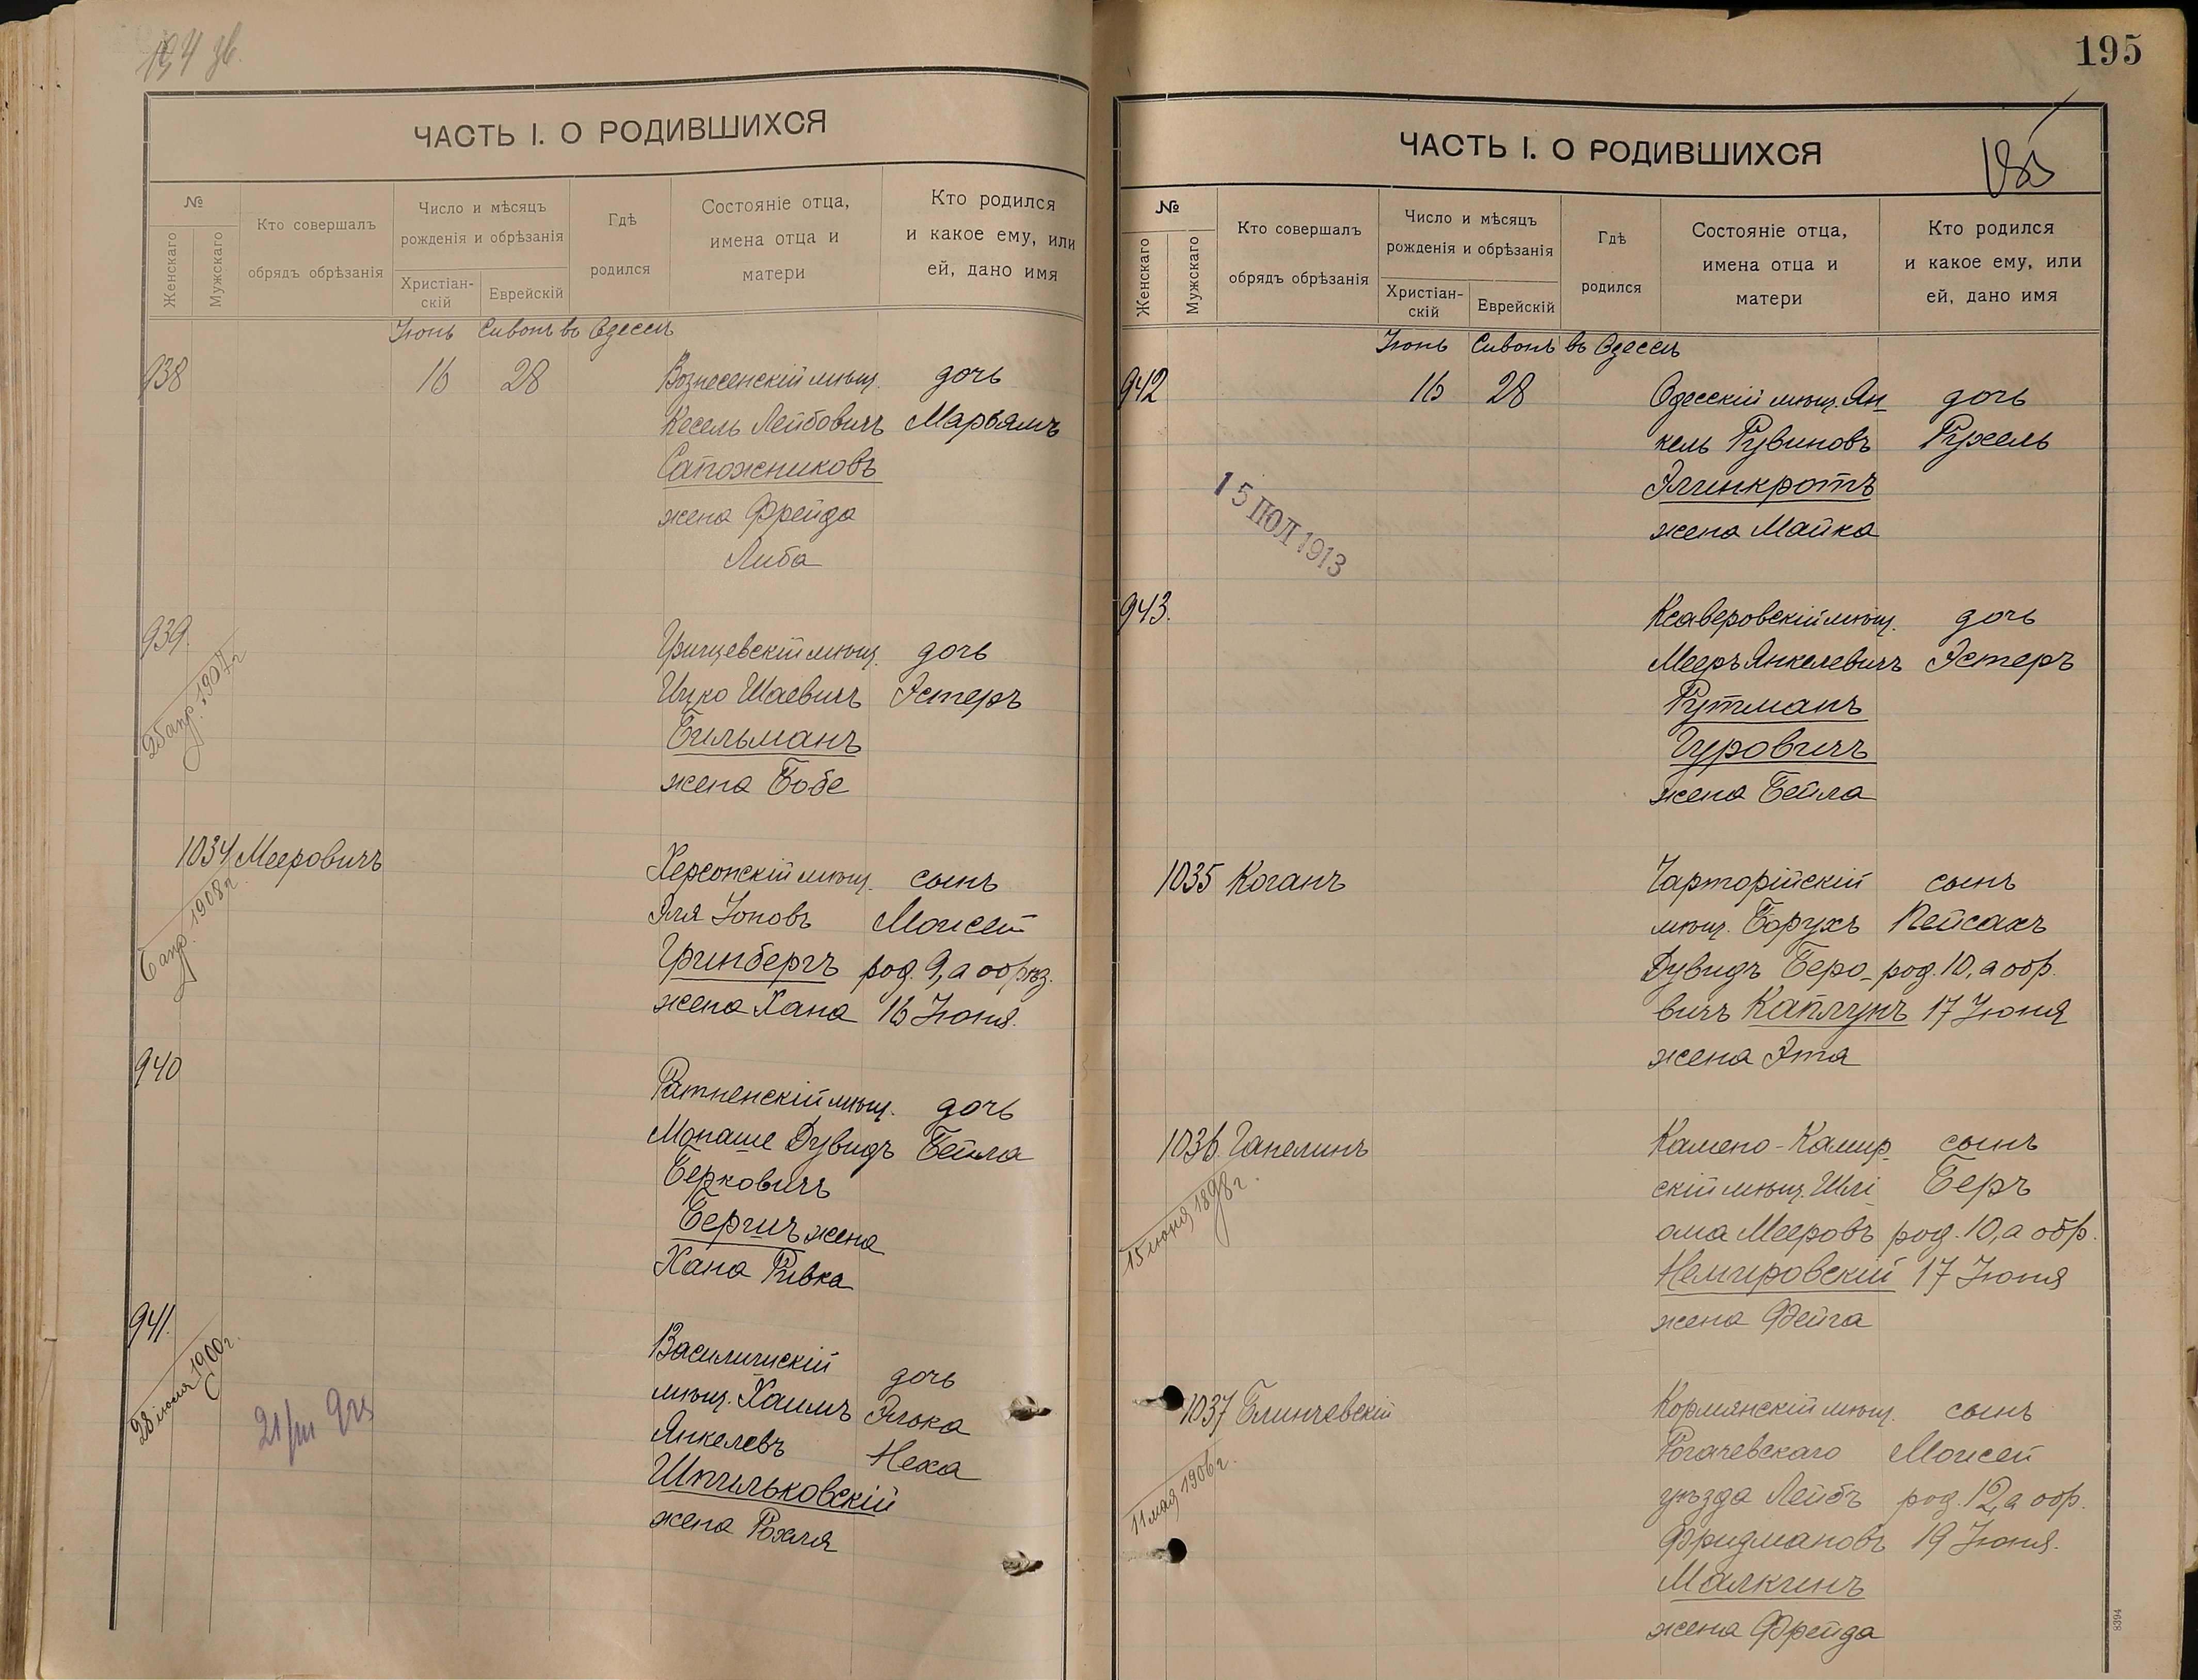 194 зв.
ЧАСТЬ I. О РОДИВШИХСЯ
№
Женскаго
Мужскаго
Кто совершалъ
обрядъ обрѣзанія
Число и мѣсяцъ
рожденія и обрѣзанія
Христіан-
скій
Еврейскій
Гдѣ
родился
Состояніе отца,
имена отца и
матери
Кто родился
и какое ему, или
ей, дано имя
Іюнь Сивонъ въ Одессѣ
938 16 28 Вознесенскій мѣщ. дочь
Кесель Лейбовичъ Марьямъ
Сапожниковъ
жена Фрейда
Либа
939. Грицевскій мѣщ. дочь
25 апр. 1907 г.
Ицко Шаевичъ Эстеръ
Бильманъ
жена Бобе
1034 Мееровичъ Херсонскій мѣщ. сынъ
6 апр. 1908 г.
Эля Іоновъ Моисей
Гринбергъ род. 9, а обрѣз.
жена Хана 16 Іюня.
940 Ратненскій мѣщ. дочь
Монаше Дувидъ Бейла
Берковичъ
Бергичъ жена
Хана Ривка
941. Василишскій дочь
28 іюля 1900 г.
мѣщ. Хаимъ Элька
Янкелевъ Неха
Шпильковскій
жена Рохля
195
ЧАСТЬ I. О РОДИВШИХСЯ
№
Женскаго
Мужскаго
Кто совершалъ
обрядъ обрѣзанія
Число и мѣсяцъ
рожденія и обрѣзанія
Христіан-
скій
Еврейскій
Гдѣ
родился
Состояніе отца,
имена отца и
матери
Кто родился
и какое ему, или
ей, дано имя
Іюнь Сивонъ въ Одессѣ
942 16 28 Одесскій мѣщ. Ян-
кель Рувиновъ
дочь
Рухель
Эллинкротъ
жена Майка
15 ІЮЛ 1913
943. Ксаверовскій мѣщ. дочь
Мееръ Янкелевичъ Эстеръ
Рутманъ
Гуровичъ
жена Бейла
1035 Коганъ Чарторійскій сынъ
мѣщ. Борухъ Пейсахъ
Дувидъ Беро- род. 10, а обр.
вичъ Каплунъ 17 Іюня
жена Эта
1036 Гапелинъ Камено-Камир- сынъ
15 іюня 1898 г.
скій мѣщ. Шлі Беръ
ома Мееровъ род. 10, а обр.
Немировскій 17 Іюня
жена Фейга
1037 Блинчевскій Кормянскій мѣщ. сынъ
11 мая 1906 г.
Рогачевскаго Моисей
уѣзда Лейбъ род. 12, а обр.
Фридмановъ 19 Іюня.
Малкинъ
жена Фрейда
8394